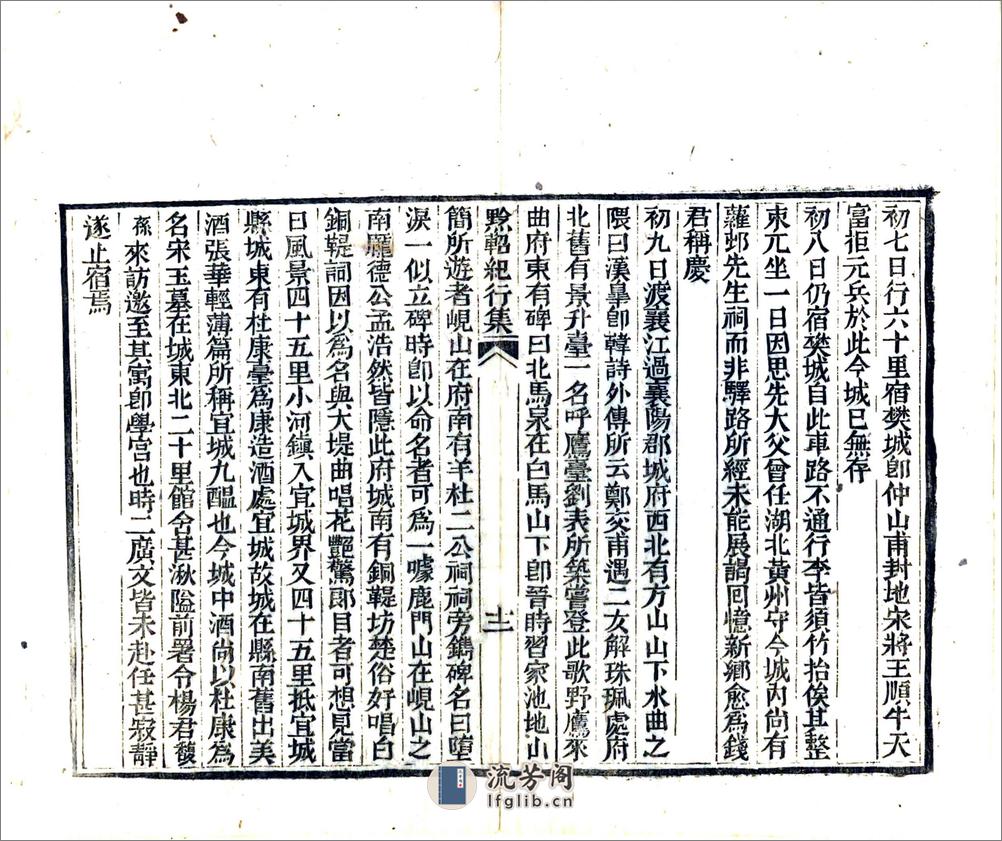 初七日行六十里宿樊城卽仲山甫封地宋將王順牛天
富拒元兵於此今城已無存
初八日仍宿樊城自此車路不通行李皆須竹抬俟其整
束兀坐一日因思先大父曾任湖北黃州守今城內尚有
蘿邨先生祠而非驛路所經未能展謁回憶新鄉愈爲錢
君稱慶
初九日渡襄江過襄陽郡城府西北有方山山下水曲之
隈曰漢皋卽韓詩外傳所云鄭交甫遇二女解珠珮處府
北舊有景升臺一名呼鷹臺劉表所築嘗登此歌野鷹來
曲府東有碑曰北馬泉在白馬山下卽晉時習家池地山
黔軺紀行集
十二
簡所遊者峴山在府南有羊杜二公祠祠旁鐫碑名曰墮
淚一似立碑時卽以命名者可爲一噱鹿門山在峴山之
南龐德公孟浩然皆隱此府城南有銅鞮坊楚俗好唱白
銅鞮詞因以爲名與大堤曲唱花豔驚郎目者可想見當
日風景四十五里小河鎭入宜城界又四十五里抵宜城
縣城東有杜康臺爲康造酒處宜城故城在縣南舊出美
酒張華輕薄篇所稱宜城九醞也今城中酒尚以杜康爲
名宋玉墓在城東北二十里館舍甚湫隘前署令楊君馥
孫來訪邀至其寓卽學宮也時二廣文皆未赴任甚寂靜
遂止宿焉
流芳阁
lfglib.cn